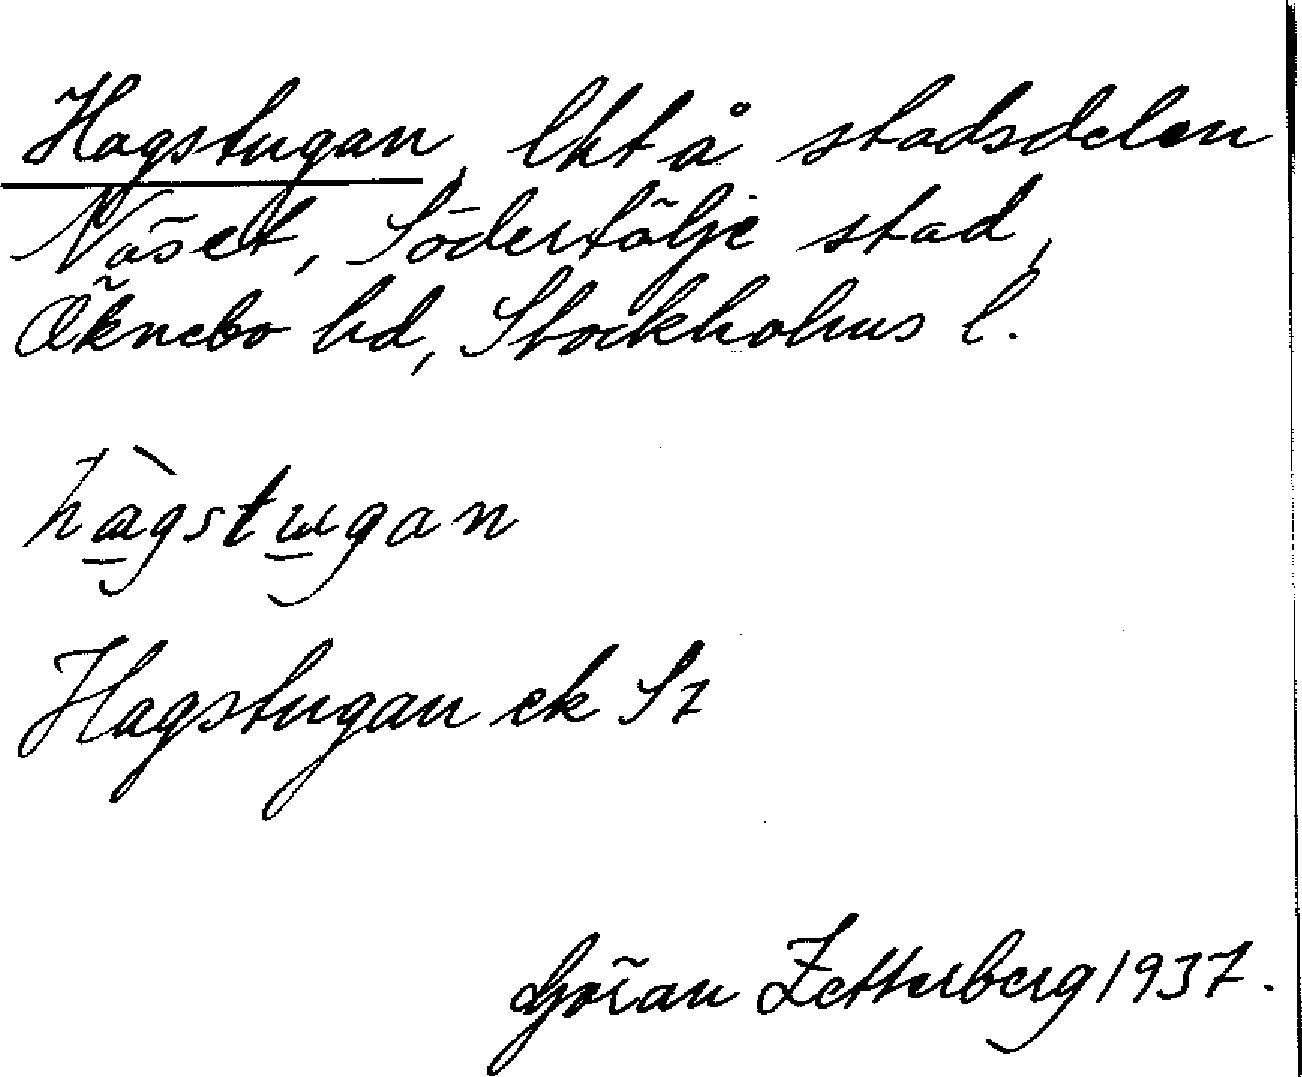 Hagstugan, lht å stadsdelen
Näset, Södertälje stad,
Öknebo hd, Stockholms l.
hàgstugan
Hagstugan ek
Göran Zetterberg 1937.